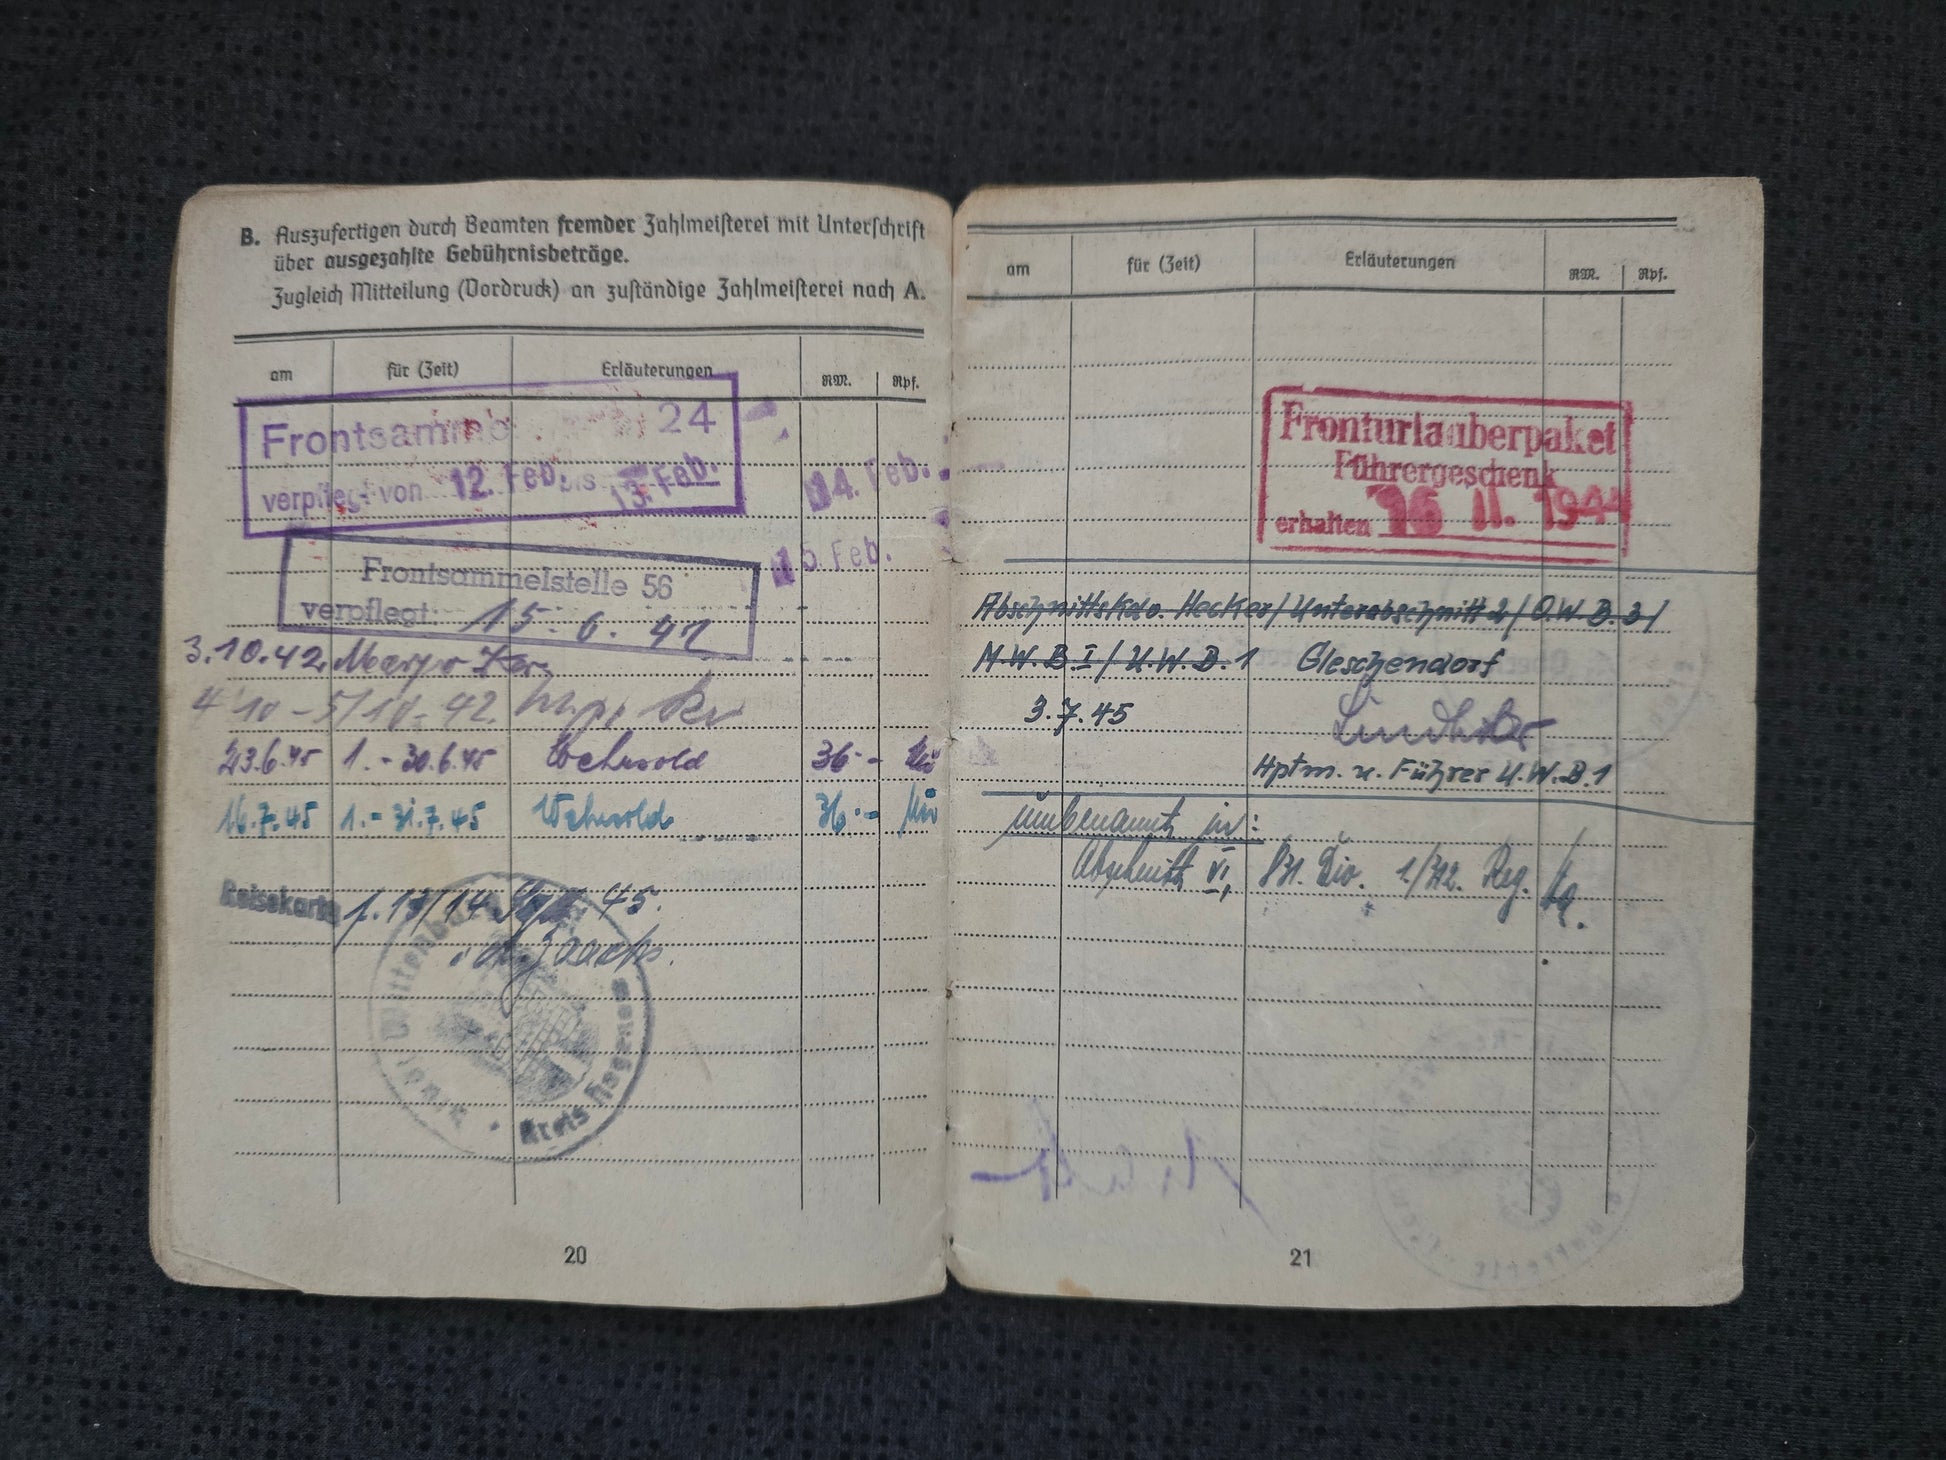 B. Auszufertigen durch Beamten fremder Zahlmeisterei mit Unterschrift
über ausgezahlte Gebührnisbeträge.
Zugleich Mitteilung (Vordruck) an zuständige Zahlmeisterei nach A.
am für (Zeit) Erläuterungen RM. Rpf.
24
verpflegt von 12. Feb. bis 13. Feb.
14. Feb.
15. Feb.
Frontsammelstelle 56
verpflegt: 15. 6. 42
3.10.42
4 10 - 5/10. 42.
23.6.45 1. - 30.6.45 Wehrsold 36.-
16.7.45 1. - 31.7.45 Wehrsold 36.-
Reisekarte f. 13/14 Sept 45.
Wittenborn
Kreis
20
am für (Zeit) Erläuterungen RM. Rpf.
Fronturlauberpaket
Führergeschenk
erhalten 16 11. 1944
Abschnittskdo. Hecker/Unterabschnitt 2/O.W.B. 3/
M.W.B I / U.W.B. 1 Gleschendorf
3.7.45
Hptm. u. Führer U.W.B.1
umbenannt in:
Abschnitt VI, Div. Reg.
21